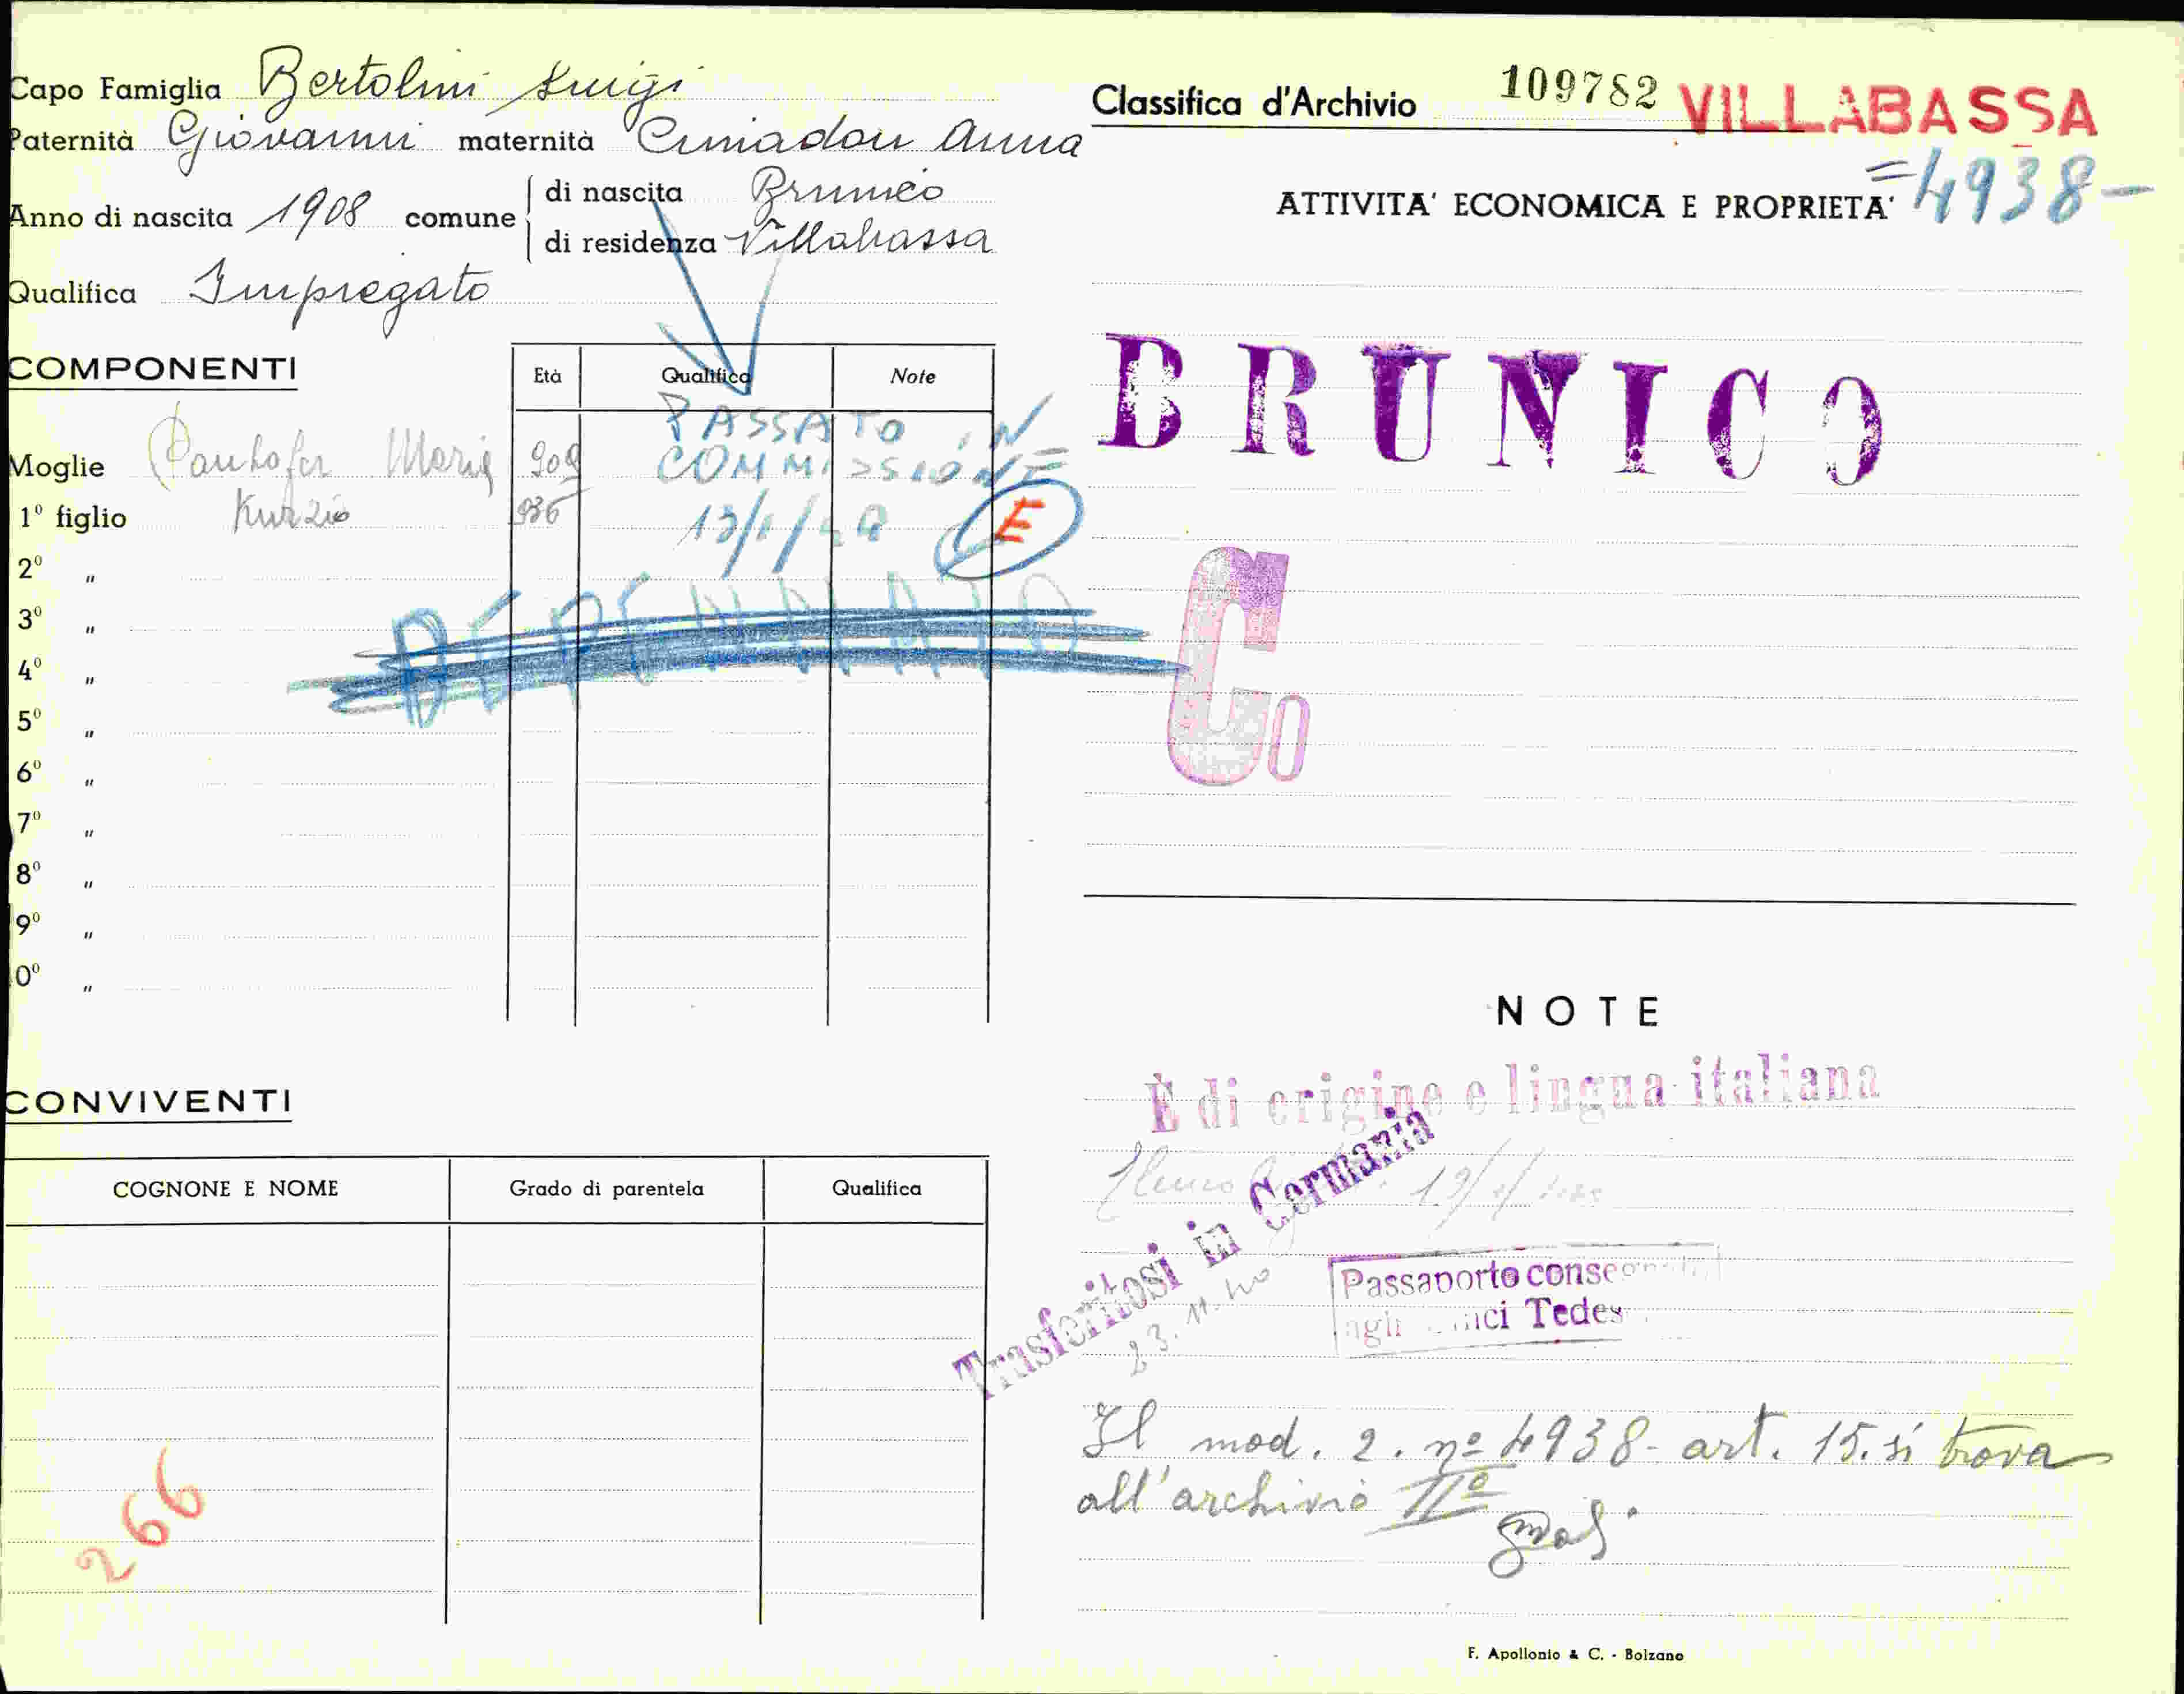 Capo Famiglia Bertolini Luigi
Paternità Giovanni maternità Cimadon Anna
Anno di nascita 1908 comune
di nascita Brunico
di residenza Villabassa
Qualifica Impiegato
COMPONENTI
Età Qualifica Note
PASSATO IN
Moglie Maria 909 COMMISSIONE
1° figlio Kurzio 936 13/1/
E
2° "
3° "
4° "
5° "
6° "
7° "
8° "
9° "
0° "
CONVIVENTI
COGNONE E NOME Grado di parentela Qualifica
266
Classifica d'Archivio 109782 VILLABASSA
ATTIVITA' ECONOMICA E PROPRIETA' =4938-
BRUNICO
Co
NOTE
È di origine e lingua italiana
Trasferitosi in Germania
23.11.40
Passaporto conse
agli Tedes
Il mod. 2. nº 4938- art. 15. si trova
all'archivio IIº
F. Apollonio & C. - Bolzano